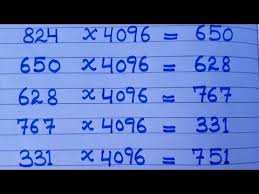 824 x 4096 = 650
650 x 4096 = 628
628 x 4096 = 767
767 x 4096 = 331
331 x 4096 = 751